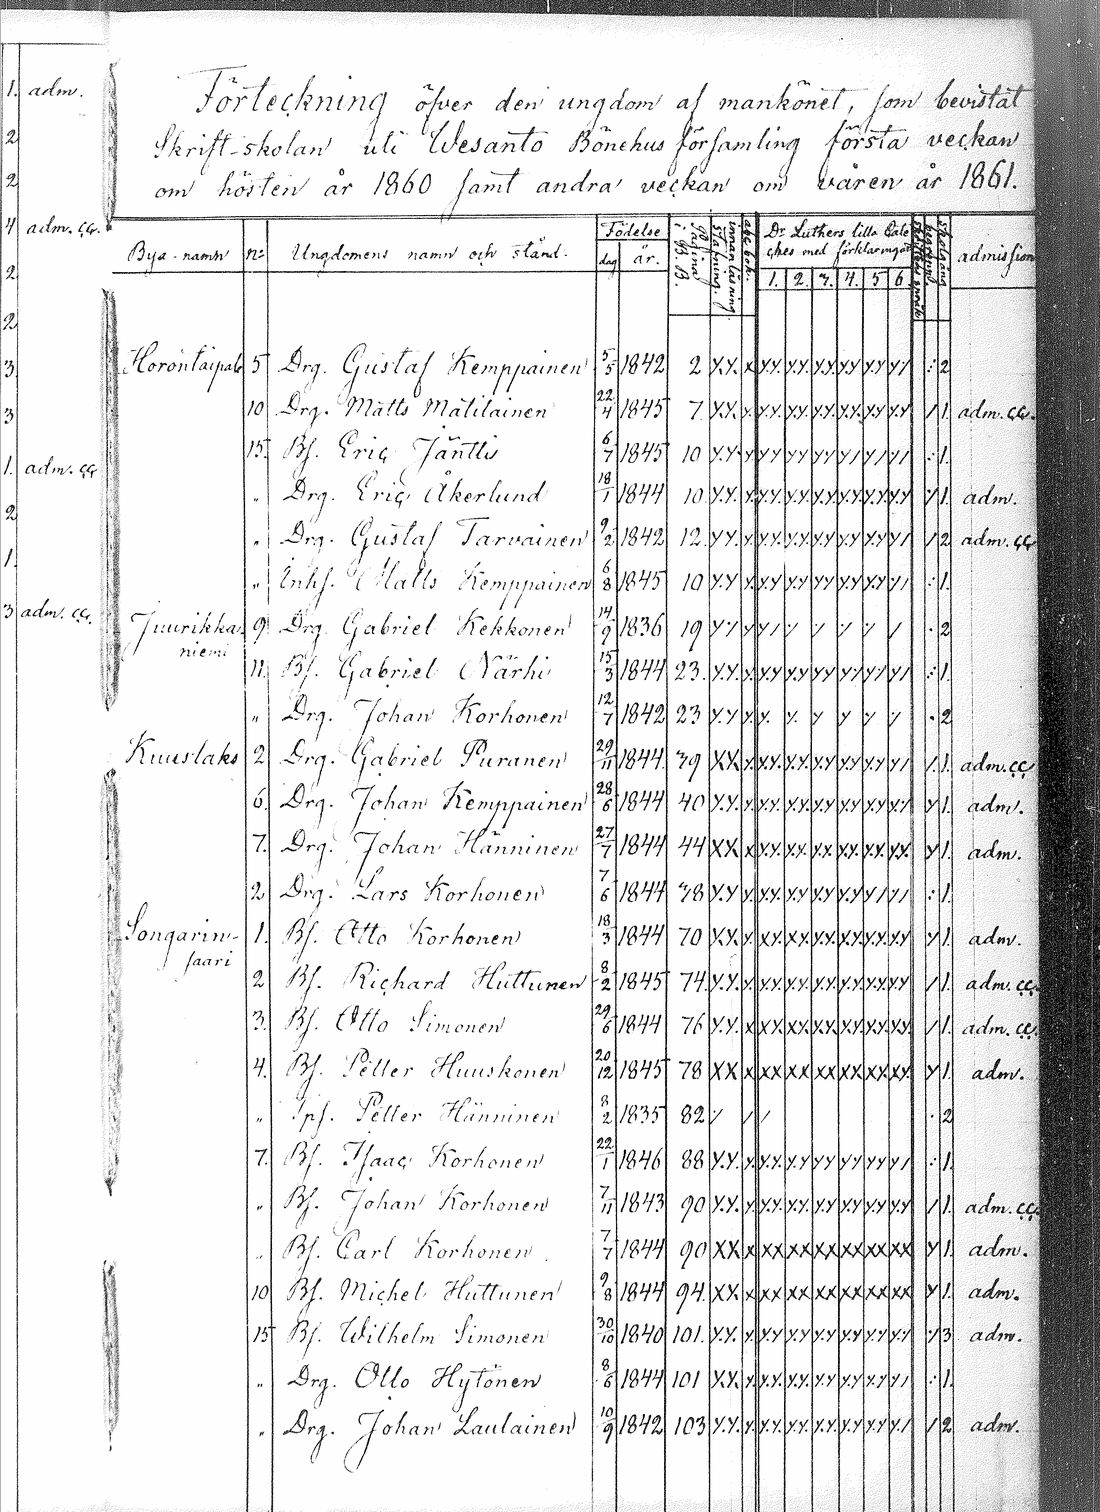 1. adm.
2
2
4 adm. cc.
2
2
3
3
1. adm. cc
2
1.
3 adm. cc.
Förteckning öfver den ungdom af mankönet, som bevistat
Skrift-skolan uti Wesanto Bönehus församling första veckan
om hösten år 1860 samt andra veckan om våren år 1861.
Bya-namn n:o Ungdomens namn och stånd. Födelse dag år. Dr Luthers lilla Cate- admission
ches med förklaringar
1. 2. 3. 4. 5 6.
Horontaipale 5 Drg. Gustaf Kemppainen 5/5 1842 2 2
10 Drg. Matts Matilainen 22/4 1845 7 1 adm. cc.
15. Bs. Eric Jäntti 6/7 1845 10 1.
" Drg. Eric Åkerlund 18/1 1844 10 1. adm.
" Drg. Gustaf Tarvainen 9/2 1842 12. 2 adm. cc
" Inhs. Matts Kemppainen 6/8 1845 10 1.
Juurikka- 9. Drg. Gabriel Kekkonen 14/9 1836 19 2
niemi
11. Bs. Gabriel Närhi 15/3 1844 23. 1.
" Drg. Johan Korhonen 12/7 1842 23 2
Kuuslaks 2 Drg. Gabriel Puranen 29/11 1844 39 1. adm. cc
6. Drg. Johan Kemppainen 28/6 1844 40 1. adm.
7. Drg. Johan Hänninen 27/7 1844 44 1. adm.
2 Drg. Lars Korhonen 7/6 1844 38 1.
Songarin- 1. Bs. Otto Korhonen 18/3 1844 70 1. adm.
saari
2 Bs. Richard Huttunen 8/2 1845 74. 1. adm. cc.
3. Bs. Otto Simonen 29/6 1844 76 1. adm. cc.
4. Bs. Petter Huuskonen 20/12 1845 78 1. adm.
" Petter Hänninen 8/2 1835 82 2
7. Bs. Isaac Korhonen 22/1 1846 88 1.
" Bs. Johan Korhonen 7/11 1843 90 1. adm. cc.
" Bs. Carl Korhonen 7/7 1844 90 1. adm.
10 Bs. Michel Huttunen 9/8 1844 94. 1. adm.
15 Bs. Wilhelm Simonen 30/10 1840 101. 3 adm.
" Drg. Otto Hytönen 8/6 1844 101 1.
" Drg. Johan Laulainen 10/9 1842 103 2 adm.